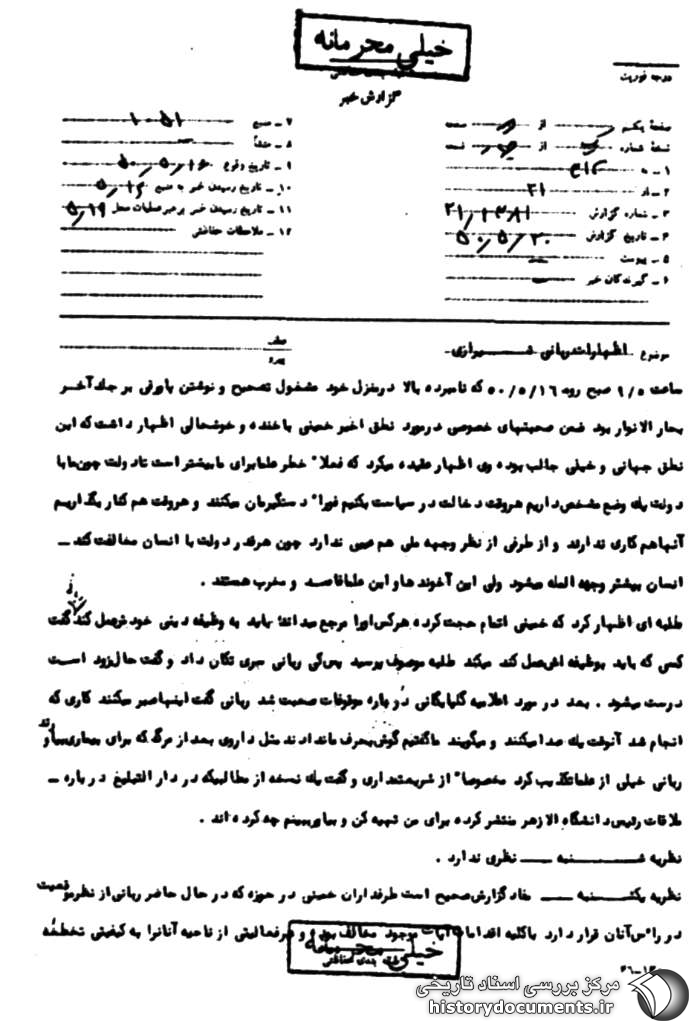 خیلی محرمانه
گزارش خبر
درجه فوریت
صفحه یکم از صفحه
نسخه شماره از نسخه
۱ـ به ۳۱۲
۲ـ از ۲۱
۳ـ شماره گزارش ۲۱/۱۳۸۱
۴ـ تاریخ گزارش ۵۰/۵/۲۰
۵ـ پیوست
۶ـ گیرندگان خبر
۷ـ منبع ۱۰۵۱
۸ـ منشأ
۹ـ تاریخ وقوع ۵۰/۵/۱۶
۱۰ـ تاریخ رسیدن خبر به منبع ۵/۱۶
۱۱ـ تاریخ رسیدن خبر برهبر عملیات محل ۵/۱۹
۱۲ـ ملاحظات حفاظتی
موضوع اظهارات ربانی شیرازی
ساعت ۹/۵ صبح روز ۵۰/۵/۱۶ که نامبرده بالا درمنزل خود مشغول تصحیح و نوشتن پاورقی بر جلد آخر
بحار الانوار بود ضمن صحبتهای خصوصی درمورد نطق اخیر خمینی باخنده و خوشحالی اظهار داشت که این
نطق جهانی و خیلی جالب بوده وی اظهار عقیده میکرد که فعلا" خطر علما برای ما بیشتر است تا دولت چون ما با
دولت یک وضع مشخص داریم هروقت دخالت در سیاست بکنیم فورا" دستگیرمان میکنند و هروقت هم کنار بگذاریم
آنها هم کاری ندارند و از طرفی از نظر وجهه ملی هم عیبی ندارد چون هرقدر دولت با انسان مخالفت کند ـ
انسان بیشتر وجیه المله میشود ولی این آخوندها و این علما فاسد و مخرب هستند .
طلبه ای اظهار کرد که خمینی اتمام حجت کرده هرکس اورا مرجع میداند باید به وظیفه دینی خودش عمل کند گفت
کسی که باید بوظیفه اش عمل کند میکند طلبه موصوف پرسید پس کی ربانی سری تکان داد و گفت حال زود است
درست میشود . بعد در مورد اعلامیه گلپایگانی درباره موقوفات صحبت شد ربانی گفت اینها صبر میکنند کاری که
انجام شد آنوقت یک صدا میکنند و میگویند ما گفتیم گوش بحرف ما ندادند مثل داروی بعد از مرگ که برای بیماری بیاورند
ربانی خیلی از علما تکذیب کرد مخصوصا" از شریعتمداری و گفت یک نسخه از مطالبیکه در دار التبلیغ درباره ـ
ملاقات رئیس دانشگاه الازهر منتشر کرده برای من تهیه کن و بیاور ببینم چه کرده اند .
نظریه شنبه ـــ نظری ندارد .
نظریه یکشنبه ـــ مفاد گزارش صحیح است طرفداران خمینی در حوزه که در حال حاضر ربانی از نظر موقعیت
در رأس آنان قرار دارد با کلیه اقدامات آیات موجود مخالف بوده و هرفعالیتی از ناحیه آنانرا به کیفیتی تخطئه
خیلی محرمانه
طبقه بندی حفاظتی
مرکز بررسی اسناد تاریخی
historydocuments.ir